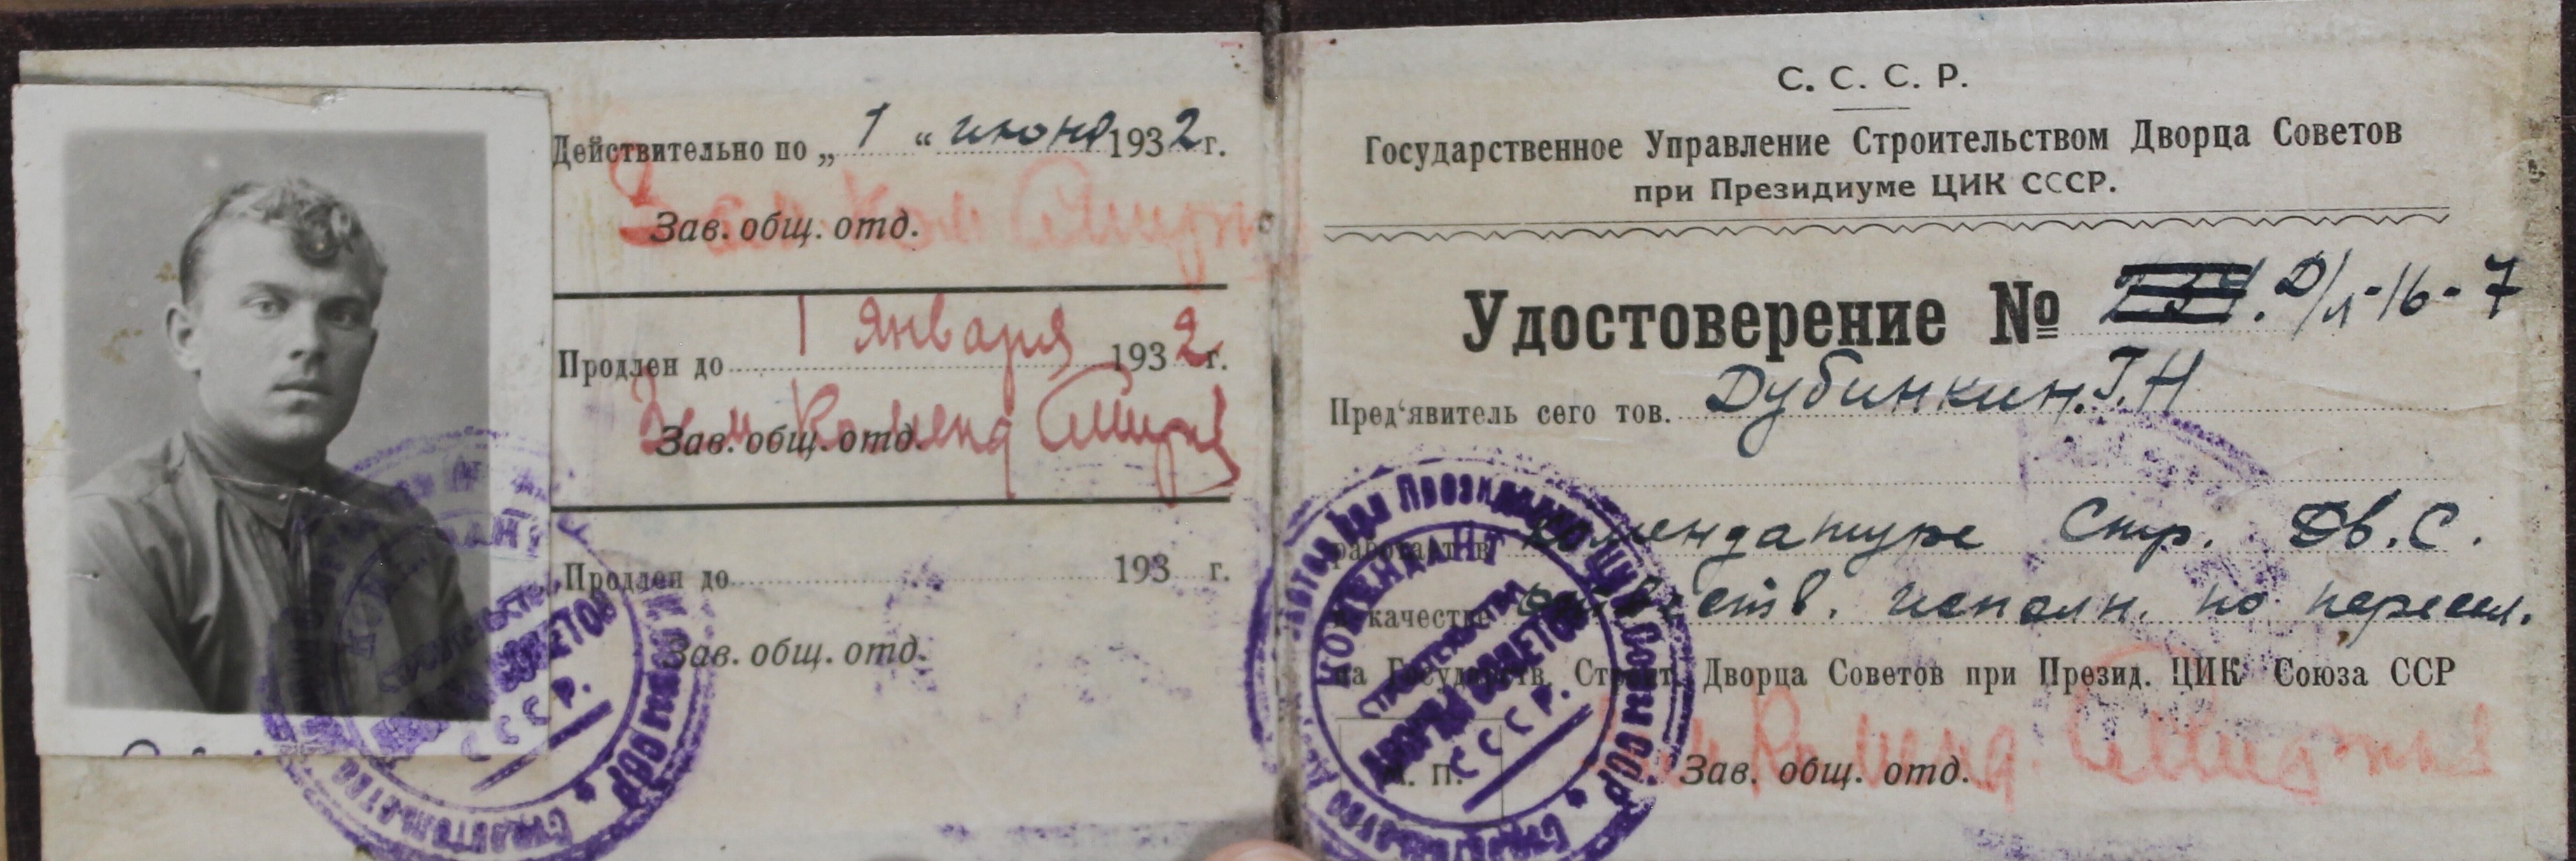 Действительно по „ 1 “ июня 1932 г.
Зав. общ. отд.
1 Января
Продлен до 1932 г.
Зам Коменд
Зав. общ. отд.
Продлен до 193 г.
Зав. общ. отд.
С. С. С. Р.
Государственное Управление Строительством Дворца Советов
при Президиуме ЦИК СССР.
Удостоверение № Д/л-16-7
Пред‘явитель сего тов. Дубинкин. Г. Н
работает в комендатуре Стр. Дв. С.
в качестве ответств. исполн. по пересел.
на Государств. Строит. Дворца Советов при Презид. ЦИК Союза ССР
М. П.
Зав. общ. отд.
КОМЕНДАНТ
СТРОИТЕЛЬСТВА
ДВОРЦА СОВЕТОВ
СССР.